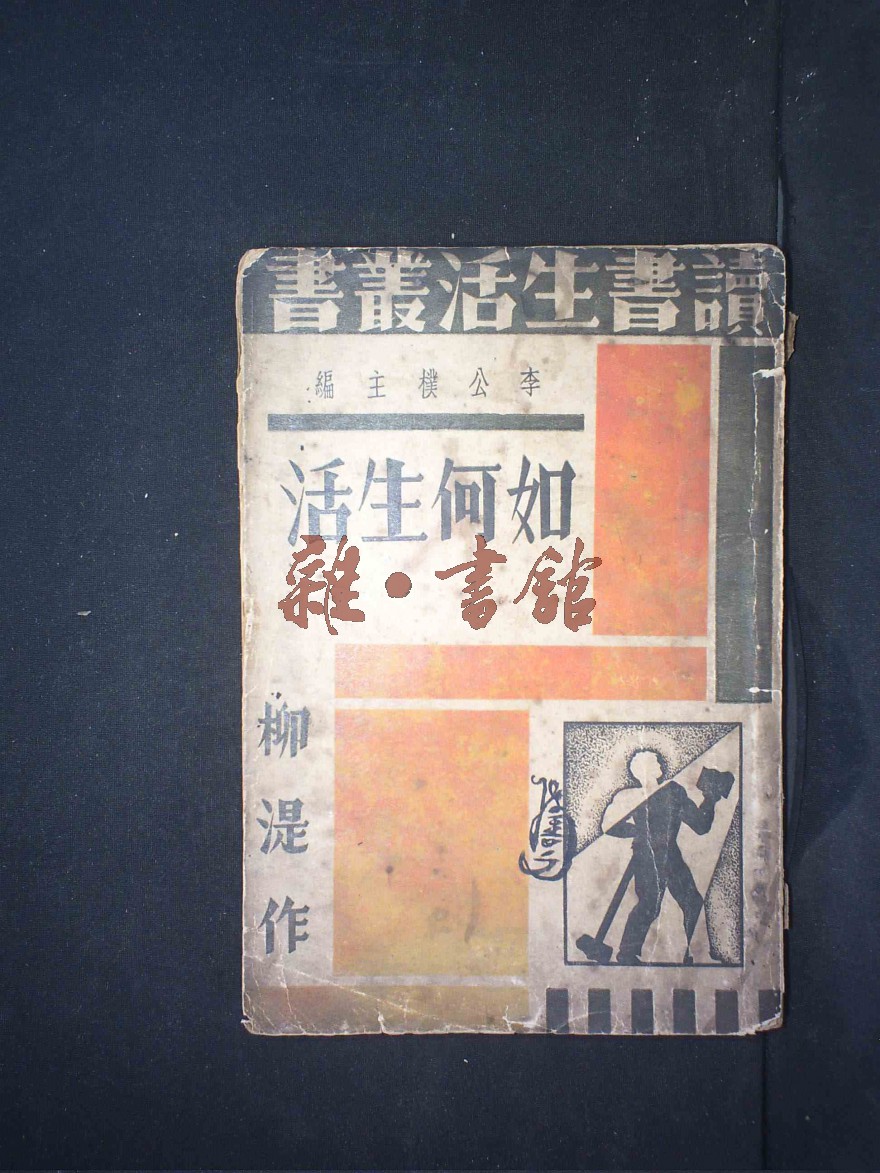 讀書生活叢書
李公樸主編
如何生活
雜·書館
柳湜作